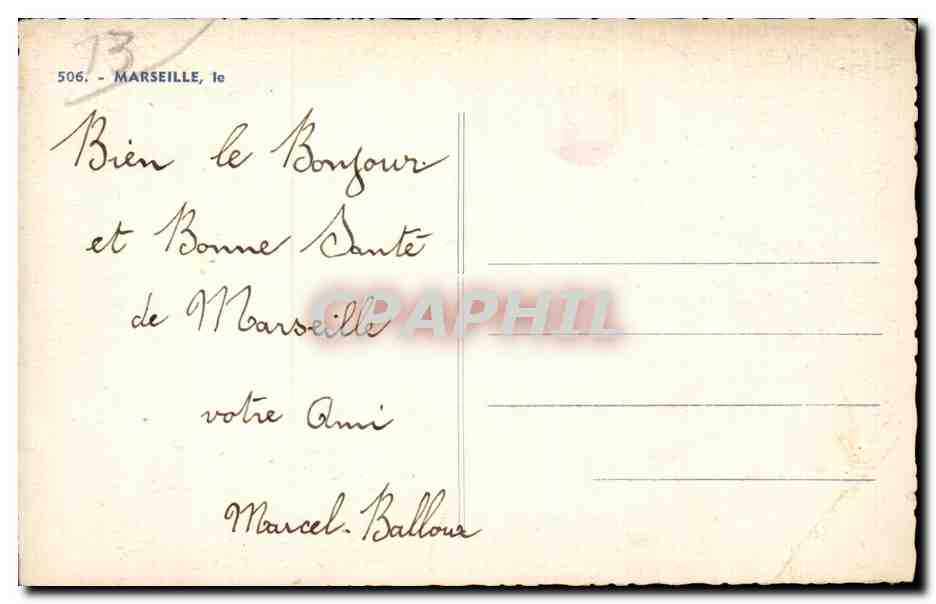 13
506. - MARSEILLE, le
Bien le Bonjour
et Bonne Santé
de Marseille
CPAPHIL
votre Ami
Marcel. Ballour